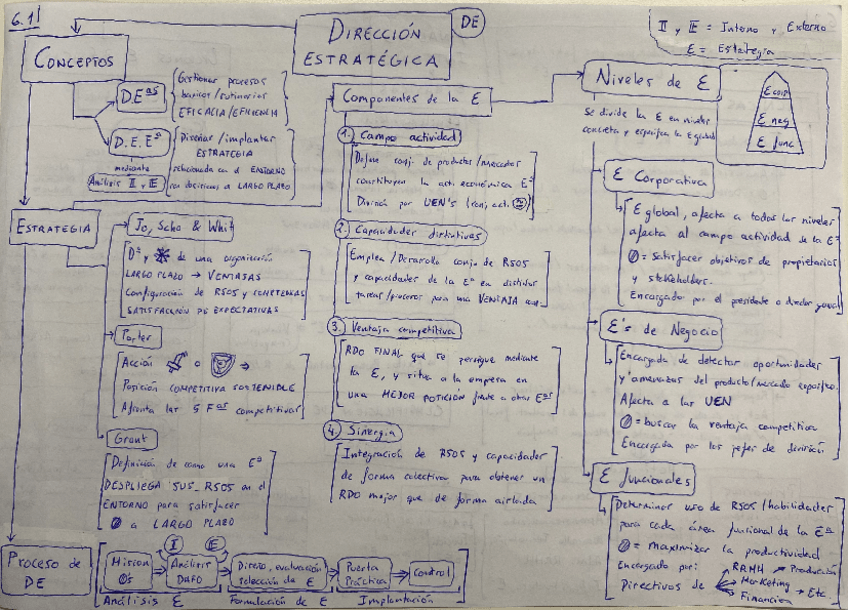 6.1
DIRECCIÓN
ESTRATÉGICA
DE
I y E = Interno y Externo
E = Estrategia
CONCEPTOS
D.Eas
Gestionar procesos
básicos/rutinarios
EFICACIA/EFICIENCIA
D.E.Ea
mediante
Análisis I y E
Diseñar/implantar
ESTRATEGIA
relacionada con el ENTORNO
con decisiones a LARGO PLAZO
ESTRATEGIA
Jo, Scho & Whit
Da y de una organización
LARGO PLAZO → VENTAJAS
Configuración de RSOS y COMPETENCIAS
SATISFACCIÓN DE EXPECTATIVAS
Porter
Acción o ⇒
Posición COMPETITIVA SOSTENIBLE
Afronta las 5 Fas competitivas
Grant
Definición de como una Ea
DESPLIEGA SUS RSOS en el
ENTORNO para satisfacer
a LARGO PLAZO
Componentes de la E
1. Campo actividad
Define conj. de productos/mercados
constituyen la act. económica Ea
División por UEN's (conj. act.)
2. Capacidades distintivas
Emplea/Desarrolla conj. de RSOS
y capacidades de la Ea en distintas
tareas/procesos para una VENTAJA
3. Ventaja competitiva
RDO FINAL que se persigue mediante
la E, y sitúa a la empresa en
una MEJOR POSICION frente a otras Eas
4. Sinergia
Integración de RSOS y capacidades
de forma colectiva para obtener un
RDO mejor que de forma aislada
Niveles de E
Se divide la E en niveles
concreta y especifica la E global
E corp
E neg
E func
E Corporativa
E global, afecta a todos los niveles
afecta al campo actividad de la Ea
= satisfacer objetivos de propietarios
y stakeholders.
Encargado por el presidente o director general
E's de Negocio
Encargada de detectar oportunidades
y amenazas del producto/mercado específico.
Afecta a las UEN
= buscar la ventaja competitiva
Encargada por los jefes de división
E funcionales
Determinar uso de RSOS/habilidades
para cada área funcional de la Ea
= maximizar la productividad
Encargado por:
Directivos de
RRHH → Producción
Marketing → Etc.
Financiera
Proceso de
DE
I E
Mision
Os
Análisis
DAFO
Diseño, evaluación
selección de E
Puesta
Práctica
Control
Análisis E
Formulación de E
Implantación